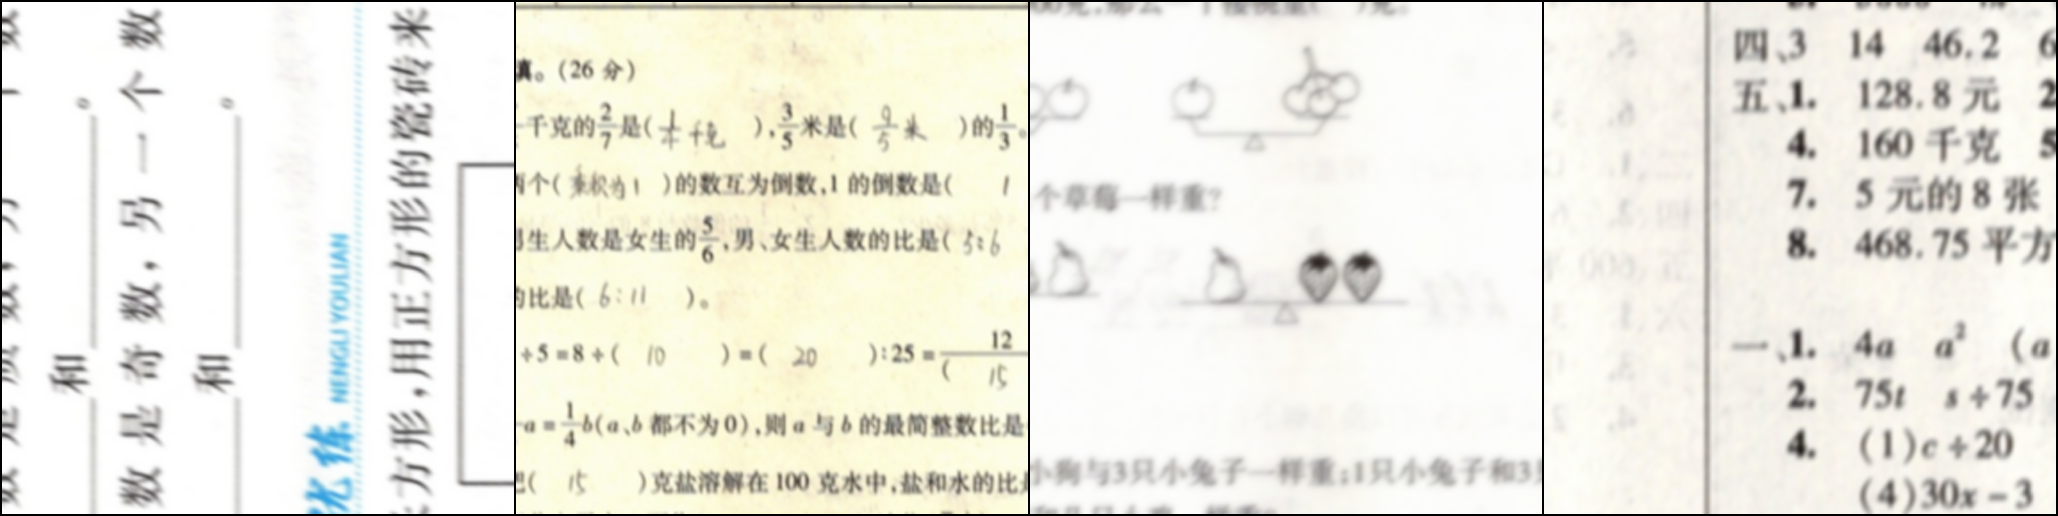 和
数是奇数，另一个数
和
优练 NENGLI YOULIAN
方形，用正方形的瓷砖来
填。(26 分)
千克的2/7是( 1/4千克 ),3/5米是( 9/5米 )的1/3。
两个( 乘积为1 )的数互为倒数,1 的倒数是( 1
男生人数是女生的5/6,男、女生人数的比是( 5:6
的比是( 6:11 )。
÷5=8÷( 10 )=( 20 ):25=12/( 15
a=1/4b(a、b 都不为0),则 a 与 b 的最简整数比是
把( 15 )克盐溶解在 100 克水中,盐和水的比
个草莓一样重?
小狗与3只小兔子一样重;1只小兔子和3只
四、3 14 46.2 6
五、1. 128.8 元 2
4. 160 千克 5
7. 5 元的 8 张
8. 468.75 平方
一、1. 4a a² (a
2. 75t s÷75
4. (1)c÷20
(4)30x-3